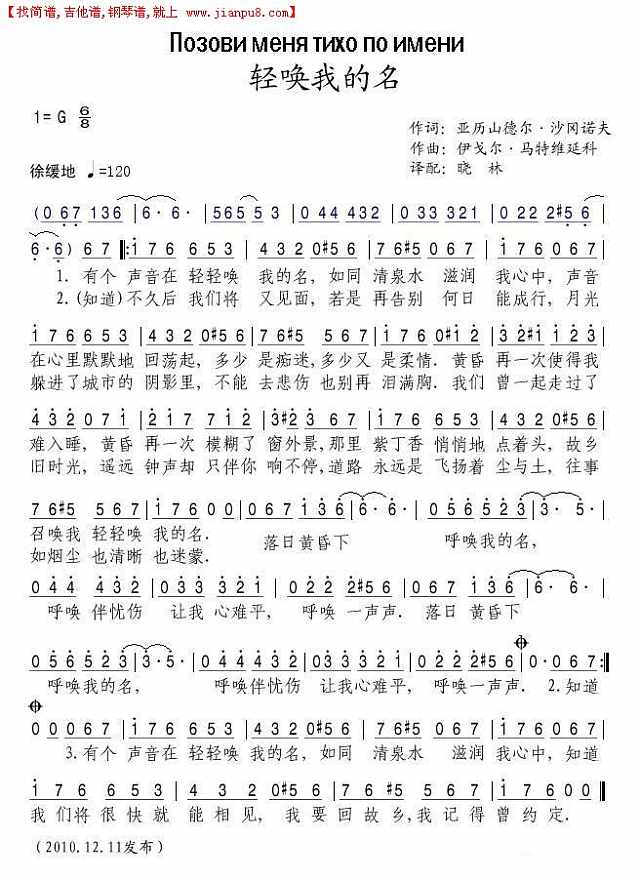 【找简谱,吉他谱,钢琴谱,就上 www.jianpu8.com】
Позови меня тихо по имени
轻唤我的名
1= G 6/8
作词: 亚历山德尔·沙冈诺夫
作曲: 伊戈尔·马特维延科
译配: 晓 林
徐缓地 ♩=120
(0 6 7 1 3 6 | 6· 6· | 5 6 5 5 3 | 0 4 4 4 3 2 | 0 3 3 3 2 1 | 0 2 2 2 #5 6 |
6·6·) 6 7 ‖: 1 7 6 6 5 3 | 4 3 2 0 #5 6 | 7 6 #5 0 6 7 | 1 7 6 0 6 7 |
1. 有个 声音在 轻轻唤 我的名, 如同 清泉水 滋润 我心中, 声音
2. (知道) 不久后 我们将 又见面, 若是 再告别 何日 能成行, 月光
1 7 6 6 5 3 | 4 3 2 0 #5 6 | 7 6 #5 0 6 7 | 1 7 6 0 6 7 | 1 7 6 6 5 3 |
在心里默默地 回荡起, 多少 是痴迷, 多少又 是柔情. 黄昏 再一次使得我
躲进了城市的 阴影里, 不能 去悲伤 也别再 泪满胸. 我们 曾一起走过了
4 3 2 0 7 1 | 2 1 7 0 1 2 | 3 #2 3 0 6 7 | 1 7 6 6 5 3 | 4 3 2 0 #5 6 |
难入睡, 黄昏 再一次 模糊了 窗外景, 那里 紫丁香 悄悄地 点着头, 故乡
旧时光, 遥远 钟声却 只伴你 响不停, 道路 永远是 飞扬着 尘与土, 往事
7 6 #5 0 6 7 | 1 7 6 0 0 | 0 6 7 1 3 6 | 6· 6· | 0 5 6 5 2 3 | 3· 5· |
召唤我 轻轻唤 我的名. 落日黄昏下 呼唤我的名,
如烟尘 也清晰 也迷蒙.
0 4 4 4 3 2 | 0 3 3 3 2 1 | 0 2 2 2 #5 6 | 0 6 7 1 3 6 | 6· 6· |
呼唤 伴忧伤 让我 心难平, 呼唤 一声声. 落日 黄昏下
0 5 6 5 2 3 | 3· 5· | 0 4 4 4 3 2 | 0 3 3 3 2 1 | 0 2 2 0 #5 6 | 0· 0 6 7 :‖
呼唤我的名, 呼唤伴忧伤 让我心难平, 呼唤一声声. 2.知道
0 0 0 6 7 | 1 7 6 6 5 3 | 4 3 2 0 #5 6 | 7 6 #5 0 6 7 | 1 7 6 0 6 7 |
3.有个 声音在 轻轻唤 我的名, 如同 清泉水 滋润 我心中, 知道
1 7 6 6 5 3 | 4 3 2 0 #5 6 | 7 6 #5 0 6 7 | 1 7 6 0 0 ‖
我 们将 很快就 能 相 见, 我 要 回 故 乡, 我 记 得 曾 约 定.
(2010.12.11发布)